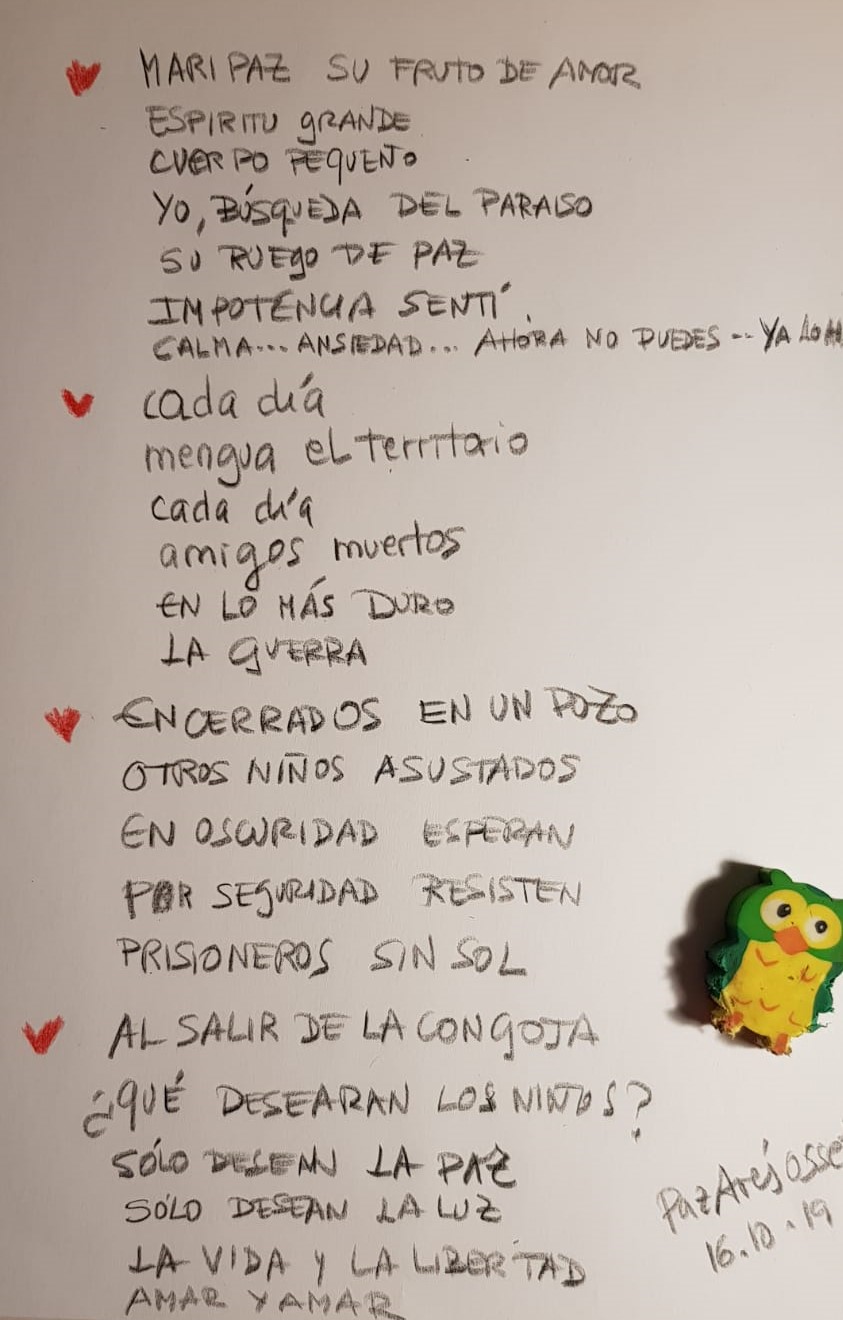 MARI PAZ SU FRUTO DE AMOR
ESPIRITU GRANDE
CUERPO PEQUEÑO
YO, BÚSQUEDA DEL PARAISO
SU RUEGO DE PAZ
IMPOTENCIA SENTÍ.
CALMA... ANSIEDAD... AHORA NO PUEDES -- YA
cada día
mengua el territorio
cada día
amigos muertos
EN LO MÁS DURO
LA GUERRA
ENCERRADOS EN UN POZO
OTROS NIÑOS ASUSTADOS
EN OSCURIDAD ESPERAN
POR SEGURIDAD RESISTEN
PRISIONEROS SIN SOL
AL SALIR DE LA CONGOJA
¿QUÉ DESEARAN LOS NIÑOS?
SÓLO DESEAN LA PAZ
SÓLO DESEAN LA LUZ
LA VIDA Y LA LIBERTAD
AMAR Y AMAR
Paz Arés
16.10.19